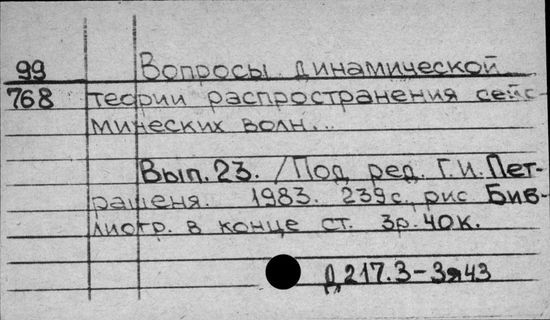 99 Вопросы динамической
768 теории распространения сейс-
мических волн...
Вып. 23. /Под ред. Г.И. Пет-
рашеня. 1983. 239с., рис Биб-
лиогр. в конце ст. 3р. 40к.
Д217.3-3я43